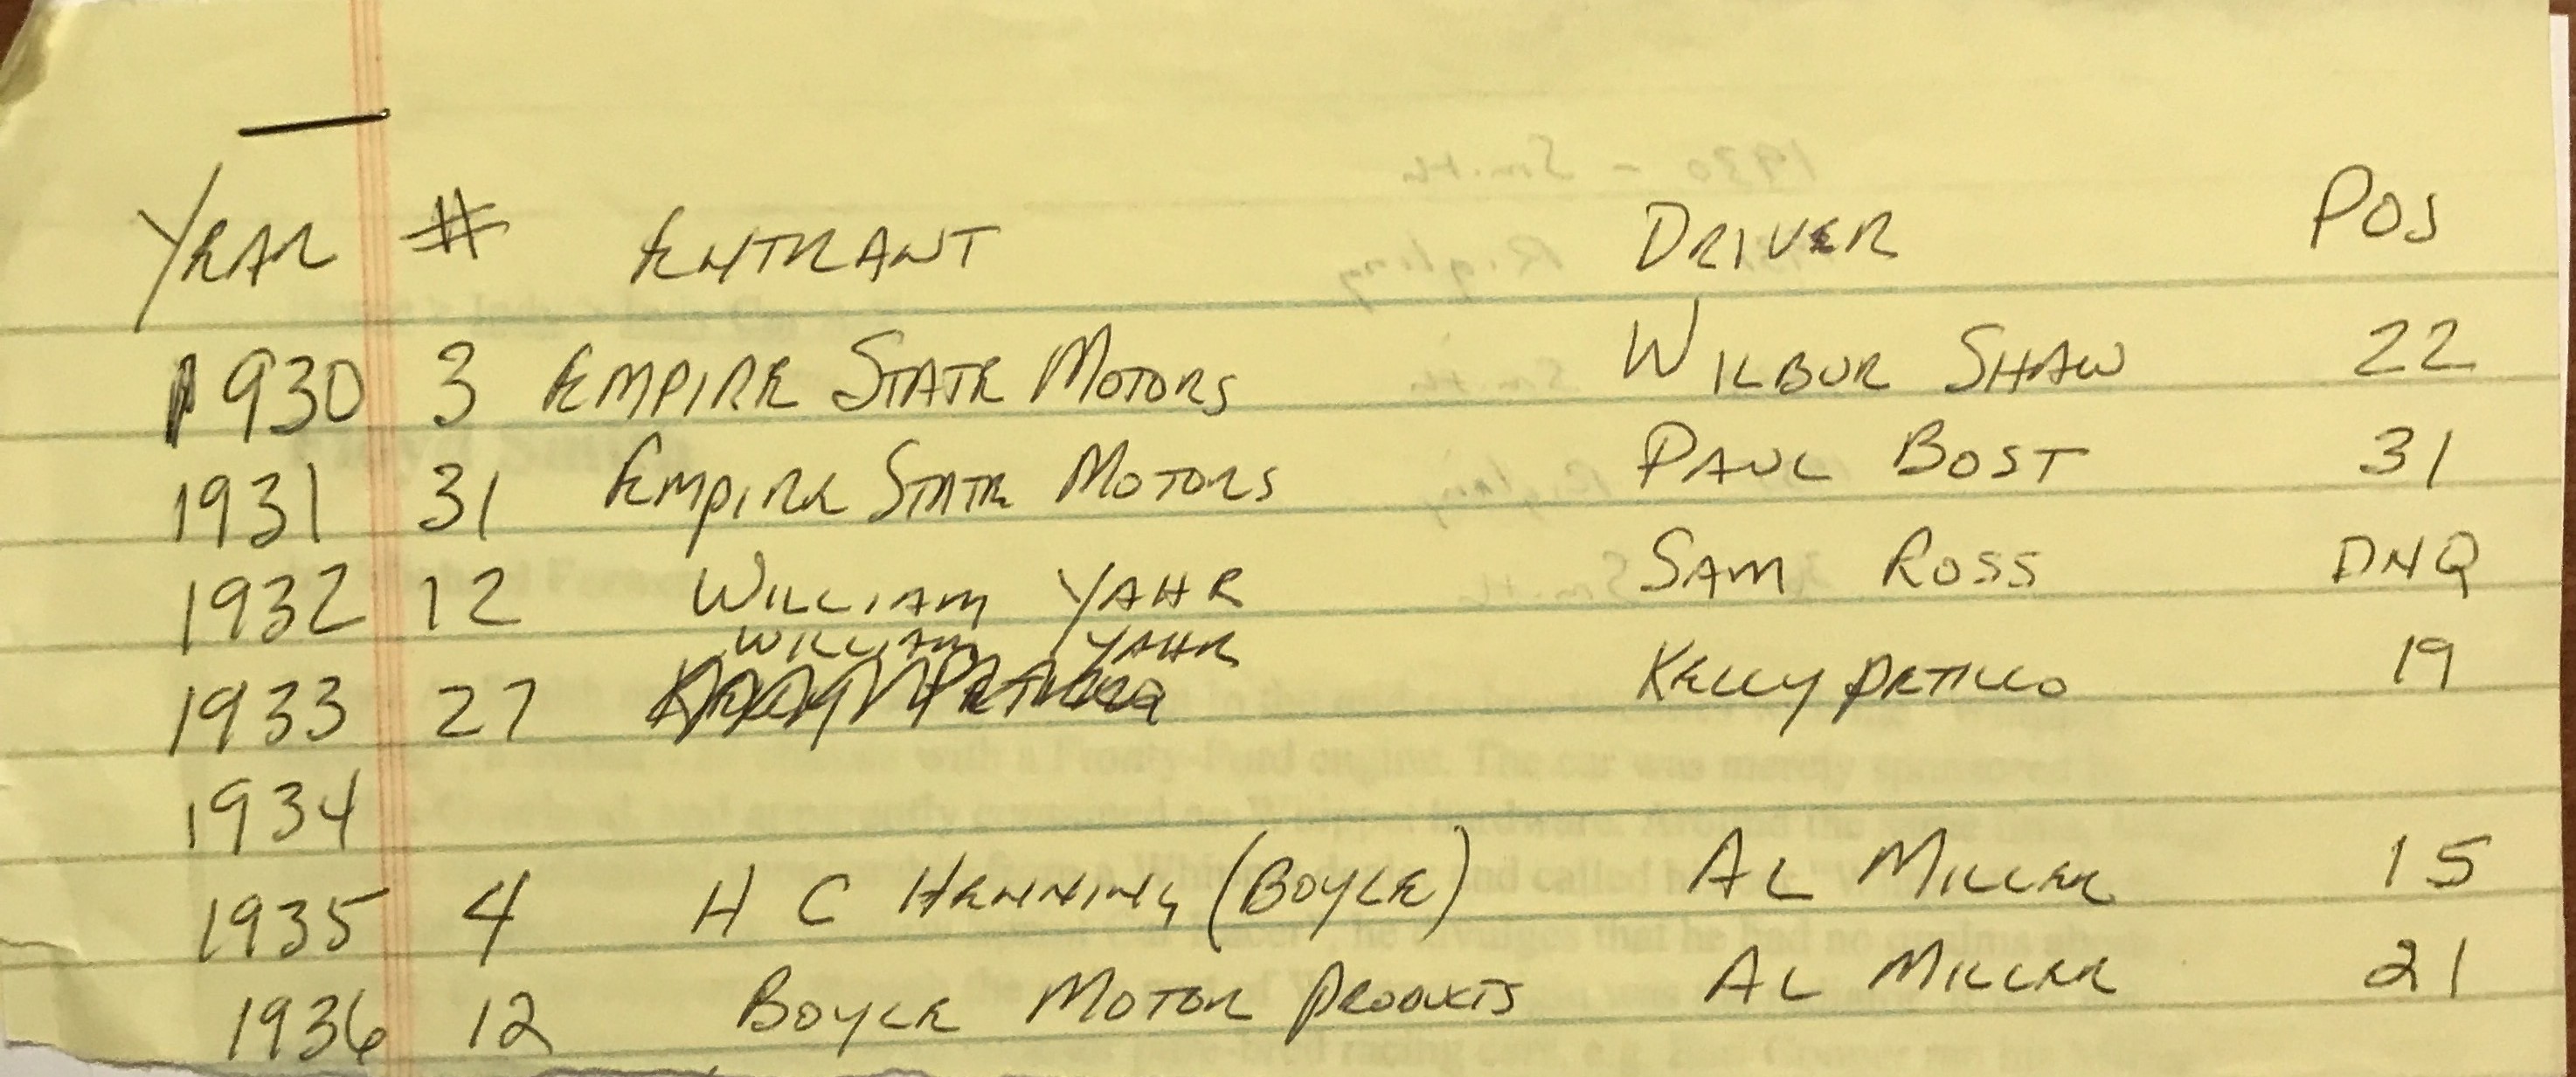 YEAR # ENTRANT DRIVER POS
1930 3 EMPIRE STATE MOTORS WILBUR SHAW 22
1931 31 EMPIRE STATE MOTORS PAUL BOST 31
1932 12 WILLIAM YAHR SAM ROSS DNQ
1933 27 WILLIAM YAHR KELLY PETILLO 19
1934
1935 4 H C HENNING (BOYLE) AL MILLER 15
1936 12 BOYLE MOTOR PRODUCTS AL MILLER 21